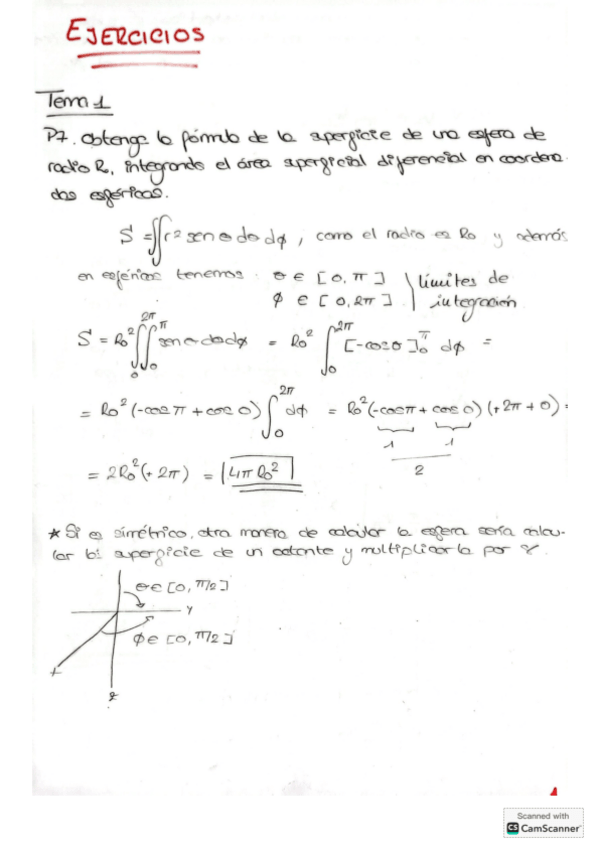 EJERCICIOS
Tema 1
P7. Obtenga la fórmula de la superficie de una esfera de
radio R, integrando el área superficial diferencial en coordena-
das esféricas.
S = ∬ r² senθ dθ dϕ, como el radio es R₀ y además
en esféricas tenemos: θ ∈ [0, π] } límites de
ϕ ∈ [0, 2π] } integración
S = R₀² ∫₀^2π ∫₀^π senθ dθ dϕ = R₀² ∫₀^2π [-cosθ]₀^π dϕ =
= R₀² (-cosπ + cos 0) ∫₀^2π dϕ = R₀² (-cosπ + cos 0) (+2π + 0) =
1 1
2
= 2R₀² (+2π) = 4π R₀²
★ Si es simétrico, otra manera de calcular la esfera sería calcu-
lar la superficie de un octante y multiplicarla por 8.
θ ∈ [0, π/2]
Y
ϕ ∈ [0, π/2]
x
z
1
Scanned with
CS CamScanner